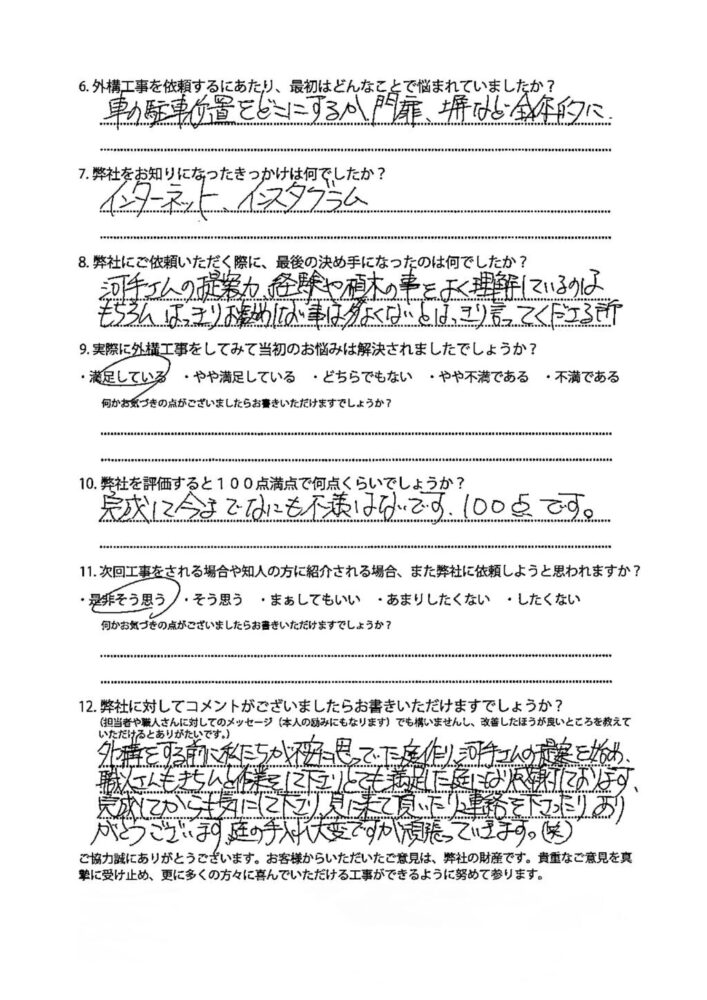 6. 外構工事を依頼するにあたり、最初はどんなことで悩まれていましたか？
車の駐車位置をどこにするか、門扉、塀など全体的に.
7. 弊社をお知りになったきっかけは何でしたか？
インターネット、インスタグラム
8. 弊社にご依頼いただく際に、最後の決め手になったのは何でしたか？
河手さんの提案力、経験や植木の事をよく理解しているのは
もちろん はっきりお勧めしない事は少なくないとはっきり言ってくださる所
9. 実際に外構工事をしてみて当初のお悩みは解決されましたでしょうか？
・満足している ・やや満足している ・どちらでもない ・やや不満である ・不満である
何かお気づきの点がございましたらお書きいただけますでしょうか？
10. 弊社を評価すると１００点満点で何点くらいでしょうか？
完成して今までなにも不満はないです、100点です。
11. 次回工事をされる場合や知人の方に紹介される場合、また弊社に依頼しようと思われますか？
・是非そう思う ・そう思う ・まぁしてもいい ・あまりしたくない ・したくない
何かお気づきの点がございましたらお書きいただけますでしょうか？
12. 弊社に対してコメントがございましたらお書きいただけますでしょうか？
（担当者や職人さんに対してのメッセージ（本人の励みにもなります）でも構いませんし、改善したほうが良いところを教えて
いただけるとありがたいです。）
外構をする前に私たちが不安に思っていた庭作り、河手さんの提案を始め、
職人さんもきちんと作業をして下さりとても満足した庭になり感謝しております、
完成してからも気にして下さり、見に来て頂いたり連絡を下さったりあり
がとうございます、庭の手入れ大変ですが頑張っていきます。(笑)
ご協力誠にありがとうございます。お客様からいただいたご意見は、弊社の財産です。貴重なご意見を真
摯に受け止め、更に多くの方々に喜んでいただける工事ができるように努めて参ります。